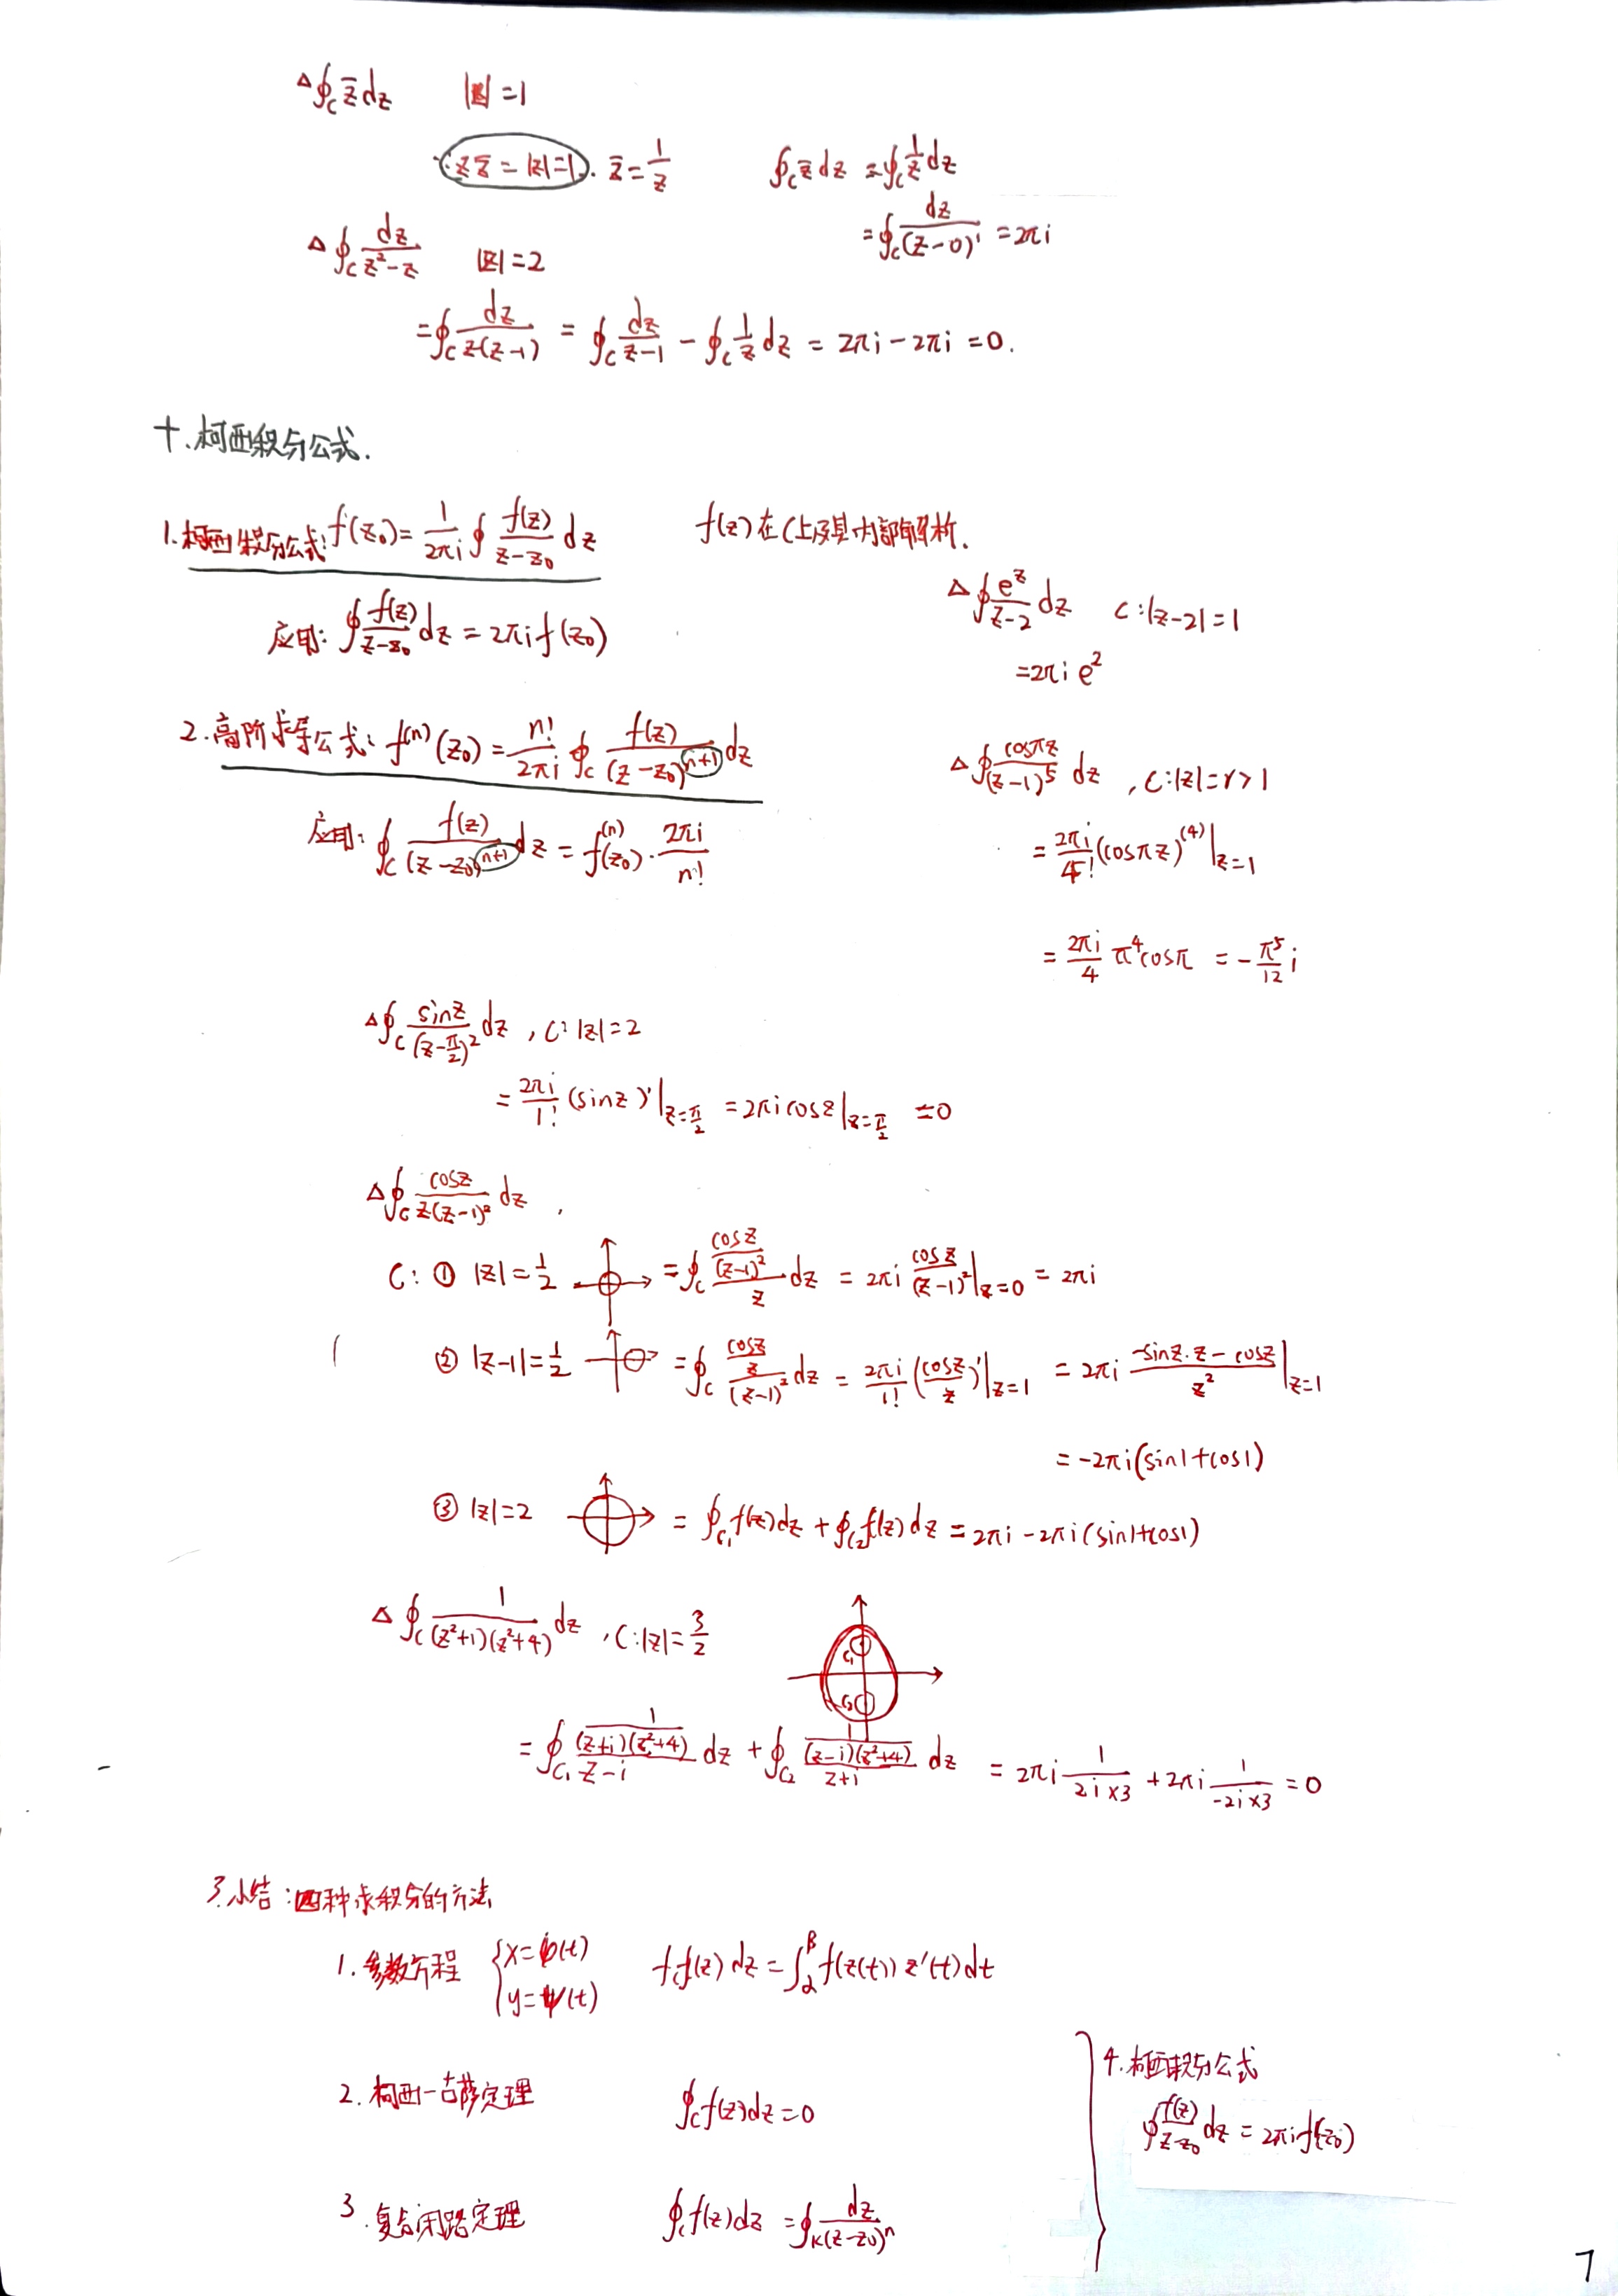 △∮_C z̄ dz |z|=1
∵ z z̄ = |z|=1. z̄ = 1/z ∮_C z̄ dz = ∮_C 1/z dz
= ∮_C dz/(z-0)¹ = 2πi
△ ∮_C dz/(z²-z) |z|=2
= ∮_C dz/(z(z-1)) = ∮_C dz/(z-1) - ∮_C 1/z dz = 2πi-2πi =0.
十.柯西积分公式.
1.柯西积分公式: f(z₀)= 1/(2πi) ∮ f(z)/(z-z₀) dz f(z)在C上及其内部解析.
应用: ∮ f(z)/(z-z₀) dz = 2πi f(z₀)
△ ∮ e^z/(z-2) dz C:|z-2|=1
=2πi e²
2.高阶求导公式: f^(n)(z₀) = n!/(2πi) ∮_C f(z)/(z-z₀)^(n+1) dz
应用: ∮_C f(z)/(z-z₀)^(n+1) dz = f^(n)(z₀) · 2πi/n!
△ ∮ cosπz/(z-1)^5 dz , C:|z|=r>1
= 2πi/4! (cosπz)^(4) |_{z=1}
= 2πi/4 π⁴cosπ = -π⁵/12 i
△∮_C sinz/(z-π/2)² dz , C: |z|=2
= 2πi/1! (sinz)'|_{z=π/2} = 2πi cosz|_{z=π/2} =0
△∮_C cosz/(z(z-1)²) dz ,
C: ① |z|=1/2 = ∮_C (cosz/(z-1)²)/z dz = 2πi cosz/(z-1)² |_{z=0} = 2πi
② |z-1|=1/2 = ∮_C (cosz/z)/(z-1)² dz = 2πi/1! (cosz/z)'|_{z=1} = 2πi (-sinz·z-cosz)/z² |_{z=1}
= -2πi(sin1+cos1)
③ |z|=2 = ∮_{C₁} f(z)dz + ∮_{C₂} f(z)dz = 2πi-2πi(sin1+cos1)
△ ∮_C 1/((z²+1)(z²+4)) dz , C:|z|=3/2
C₁
C₂
= ∮_{C₁} (1/((z+i)(z²+4)))/(z-i) dz + ∮_{C₂} (1/((z-i)(z²+4)))/(z+i) dz = 2πi 1/(2i×3) + 2πi 1/(-2i×3) = 0
3.小结:四种求积分的方法
1.参数方程 {x=φ(t) ∫_C f(z) dz = ∫_α^β f(z(t)) z'(t)dt
y=ψ(t)
2.柯西-古萨定理 ∮_C f(z)dz=0
3.复合闭路定理 ∮_C f(z)dz = ∮_K dz/(z-z₀)^n
4.柯西积分公式
∮ f(z)/(z-z₀) dz = 2πi f(z₀)
7